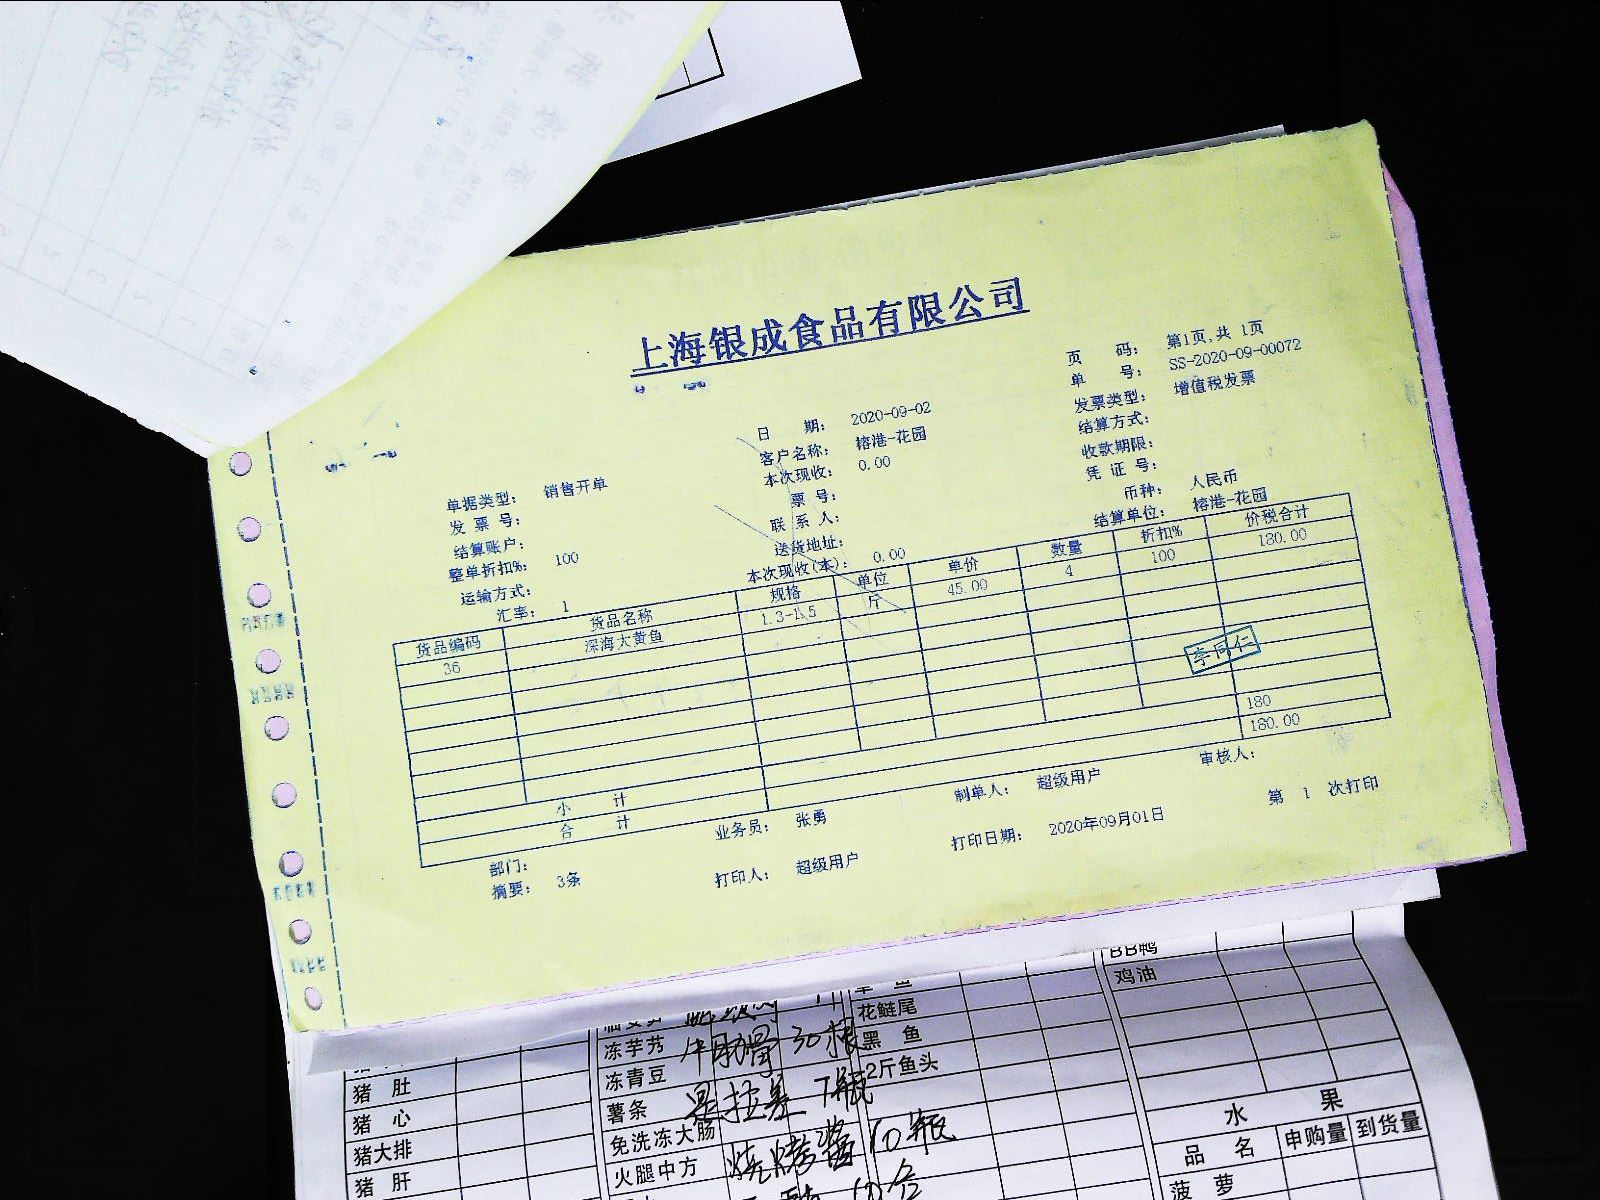 上海银成食品有限公司
页 码： 第1页,共 1页
单 号： SS-2020-09-00072
日 期： 2020-09-02 发票类型： 增值税发票
客户名称： 榕港-花园 结算方式：
单据类型： 销售开单 本次现收： 0.00 收款期限：
发 票 号： 票 号： 凭 证 号：
结算账户： 联 系 人： 币种： 人民币
整单折扣%： 100 送货地址： 结算单位： 榕港-花园
运输方式： 本次现收(本)： 0.00
汇率： 1
货品编码 货品名称 规格 单位 单价 数量 折扣% 价税合计
36 深海大黄鱼 1.3-1.5 斤 45.00 4 100 180.00
李同仁
小 计 180
合 计 180.00
部门： 业务员： 张勇 制单人： 超级用户 审核人：
摘要： 3条 打印人： 超级用户 打印日期： 2020年09月01日 第 1 次打印
BB鸭
鸡油
花鲢尾
冻芋艿 牛肋骨 30根 黑 鱼
猪 肚 冻青豆 2斤鱼头
猪 心 薯条 7瓶
猪大排 免洗冻大肠 烧烤酱 10瓶 水 果
猪 肝 火腿中方 品 名 申购量 到货量
菠 萝